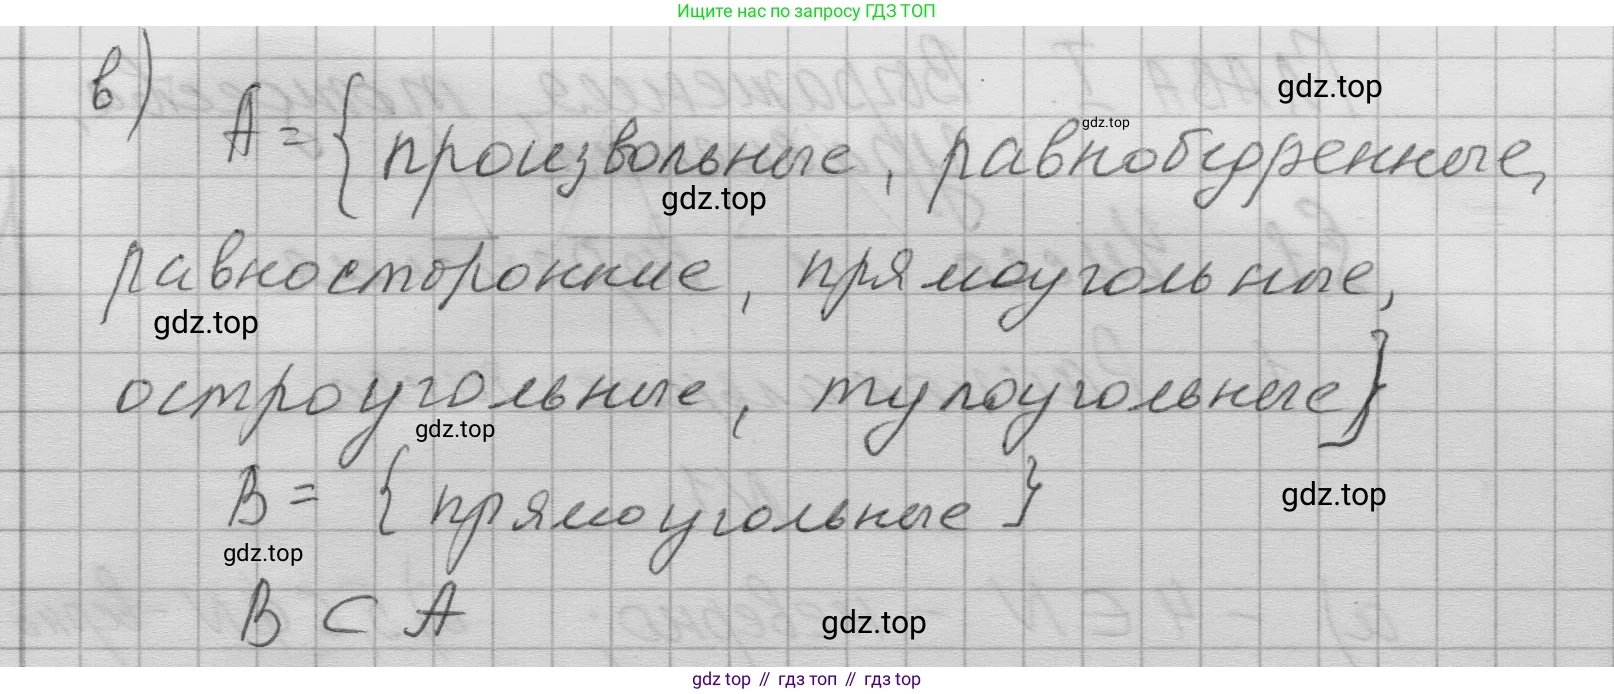 Ищите нас по запросу ГДЗ ТОП
в)
gdz.top
gdz.top
A = { произвольные, равнобедренные,
gdz.top
равносторонние, прямоугольные,
gdz.top
остроугольные, тупоугольные}
gdz.top
B = { прямоугольные }
gdz.top
gdz.top
B ⊂ A
gdz.top
gdz top // гдз топ // gdz top